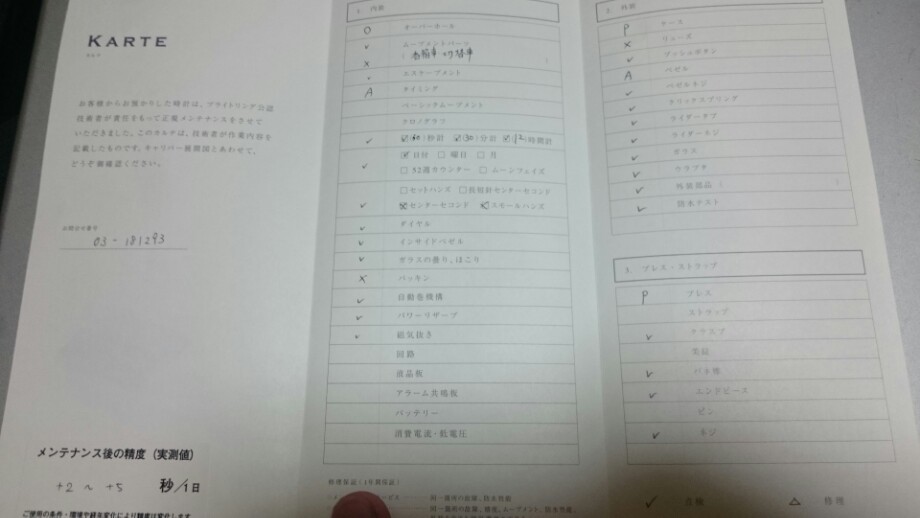 KARTE
カルテ
お客様からお預かりした時計は、ブライトリング公認
技術者が責任をもって正規メンテナンスをさせて
いただきました。このカルテは、技術者が作業内容を
記載したものです。キャリバー展開図とあわせて、
どうぞ御確認ください。
03-181293
メンテナンス後の精度（実測値）
+2 ~ +5 秒/1日
ご使用の条件・環境や経年変化により精度は変化します
1. 内装
O オーバーホール
✓ ムーブメントパーツ
X
✓ エスケープメント
A タイミング
ベーシックムーブメント
クロノグラフ
✓ ☑(60)秒計 ☑(30)分計 ☑(12)時間計
✓ ☑日付 □曜日 □月
□52週カウンター □ムーンフェイズ
□セットハンズ □長短針センターセコンド
✓ ☑センターセコンド ☑スモールハンズ
✓ ダイヤル
✓ インサイドベゼル
✓ ガラスの曇り、ほこり
X パッキン
✓ 自動巻機構
✓ パワーリザーブ
✓ 磁気抜き
回路
液晶板
アラーム共鳴板
バッテリー
消費電流・低電圧
修理保証(1年間保証)
2. 外装
P ケース
X リューズ
✓ プッシュボタン
A ベゼル
✓ ベゼルネジ
✓ クリックスプリング
✓ ライダータブ
✓ ライダーネジ
✓ ガラス
✓ ウラブタ
✓ 外装部品 ( )
✓ 防水テスト
3. ブレス・ストラップ
P ブレス
ストラップ
✓ クラスプ
美錠
✓ バネ棒
✓ エンドピース
ピン
✓ ネジ
✓ 点検 △ 修理